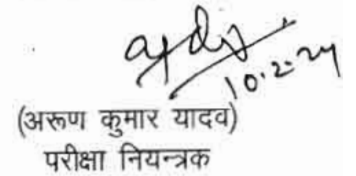 10.2.24
(अरूण कुमार यादव)
परीक्षा नियन्त्रक